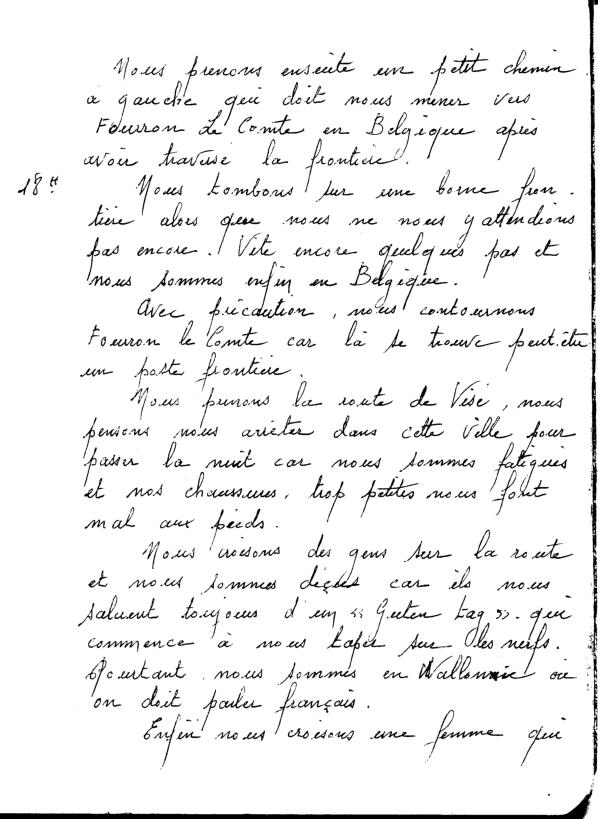 Nous prenons ensuite un petit chemin
a gauche qui doit nous mener vers
Fouron Le Comte en Belgique après
avoir traversé la frontière.
18 H Nous tombons sur une borne fron-
tière alors que nous ne nous y attendions
pas encore. Vite encore quelques pas et
nous sommes enfin en Belgique.
Avec précaution, nous contournons
Fouron le Comte car là se trouve peut.être
un poste frontière.
Nous prenons la route de Visé, nous
pensons nous arrêter dans cette ville pour
passer la nuit car nous sommes fatigués
et nos chaussures, trop petites nous font
mal aux pieds.
Nous croisons des gens sur la route
et nous sommes déçus car ils nous
saluent toujours d'un << Guten tag >>. qui
commence à nous taper sur les nerfs.
Pourtant nous sommes en Wallonnie où
on doit parler français.
Enfin nous croisons une femme qui